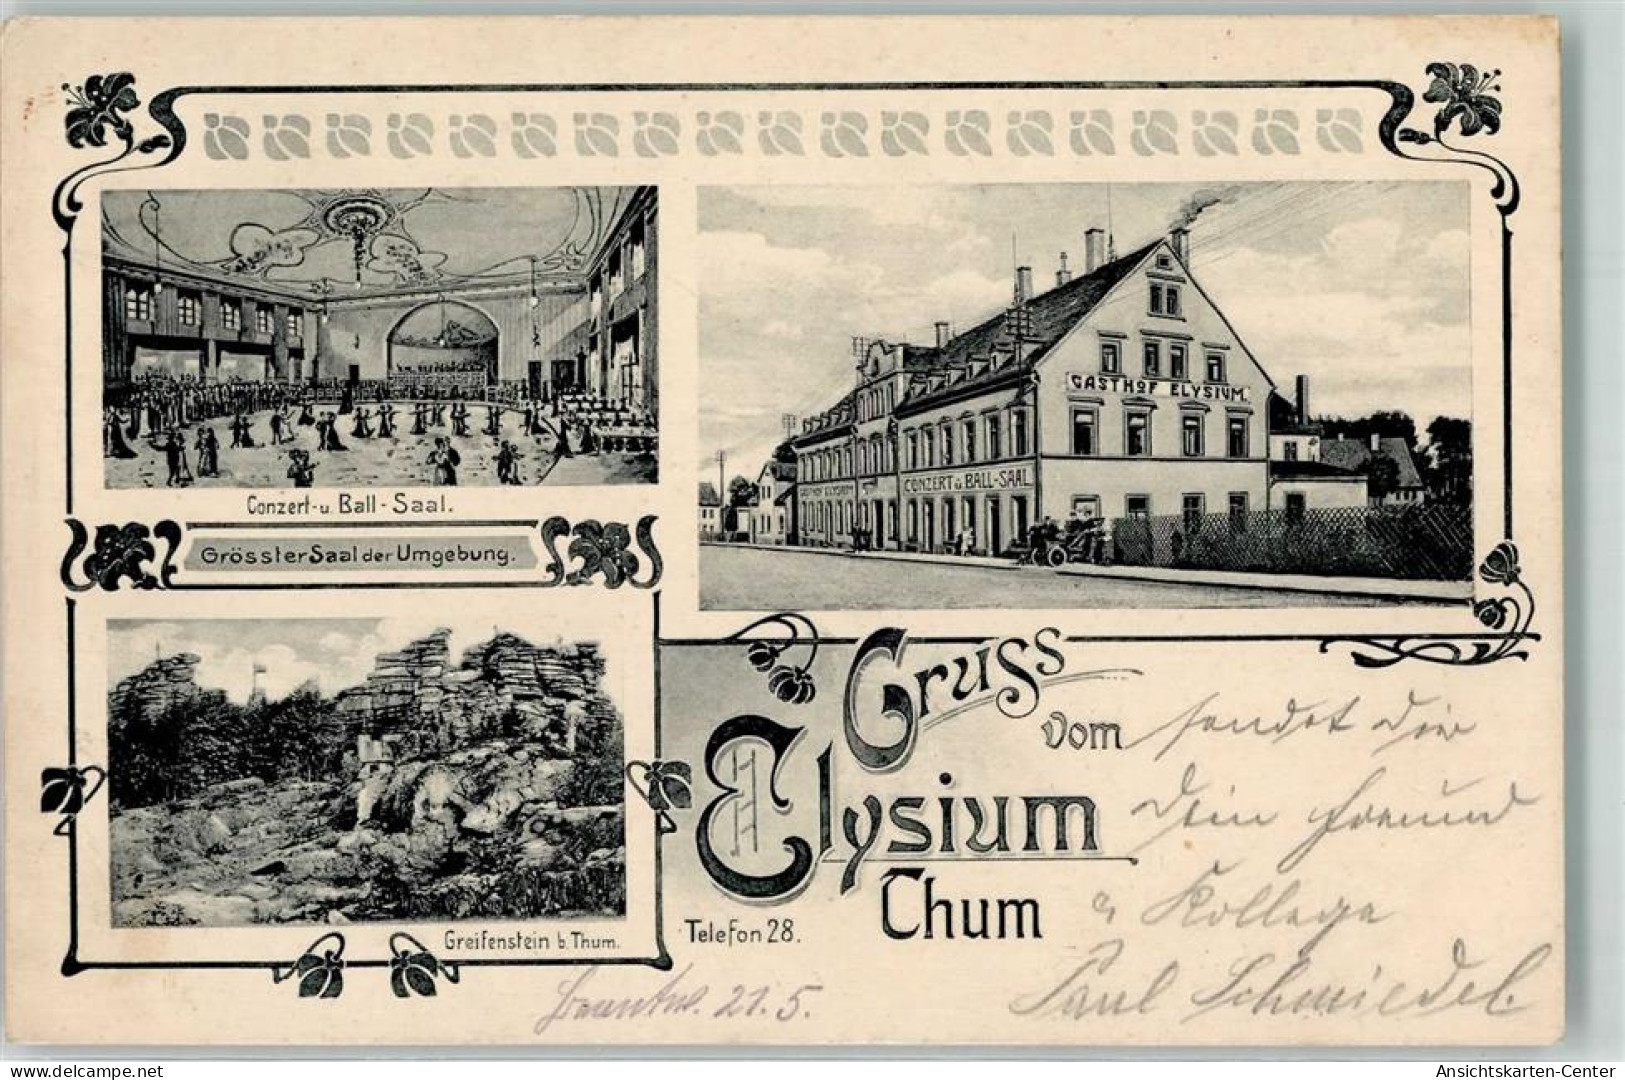 Conzert- u. Ball-Saal.
Grösster Saal der Umgebung.
Greifenstein b. Thum.
GASTHOF ELYSIUM.
GASTHOF ELYSIUM
CONZERT u. BALL-SAAL
Gruss
vom
Elysium
Thum
Telefon 28.
sendet Dir
Dein Freund
u Kollege
Paul Schmiedel.
21.5.
delcampe.net
Ansichtskarten-Center